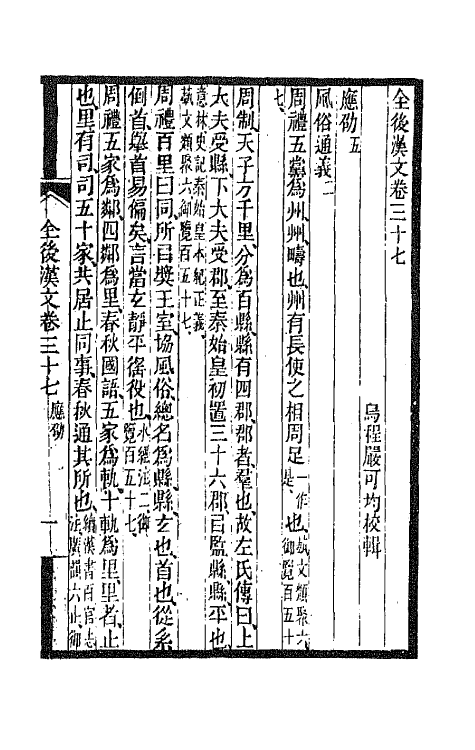 全後漢文卷三十七
烏程嚴可均校輯
應劭五
風俗通義二
周禮五黨爲州州疇也州有長使之相周足一作是也藝文類聚六御覽百五十
七
周制天子方千里分爲百縣縣有四郡郡者羣也故左氏傳曰上
大夫受縣下大夫受郡至秦始皇初置三十六郡㠯監縣縣平也
意林史記秦始皇本紀正義
藝文類聚六御覽百五十七
周禮百里曰同所㠯獎王室協風俗總名爲縣縣玄也首也從系
倒首舉首易偏矣言當玄靜平徭役也水經注二御覽百五十七
周禮五家爲鄰四鄰爲里春秋國語五家爲軌十軌爲里里者止
也里有司司五十家共居止同事春秋通其所也續漢書百官志注廣韻六止御
全後漢文卷三十七 應劭 一